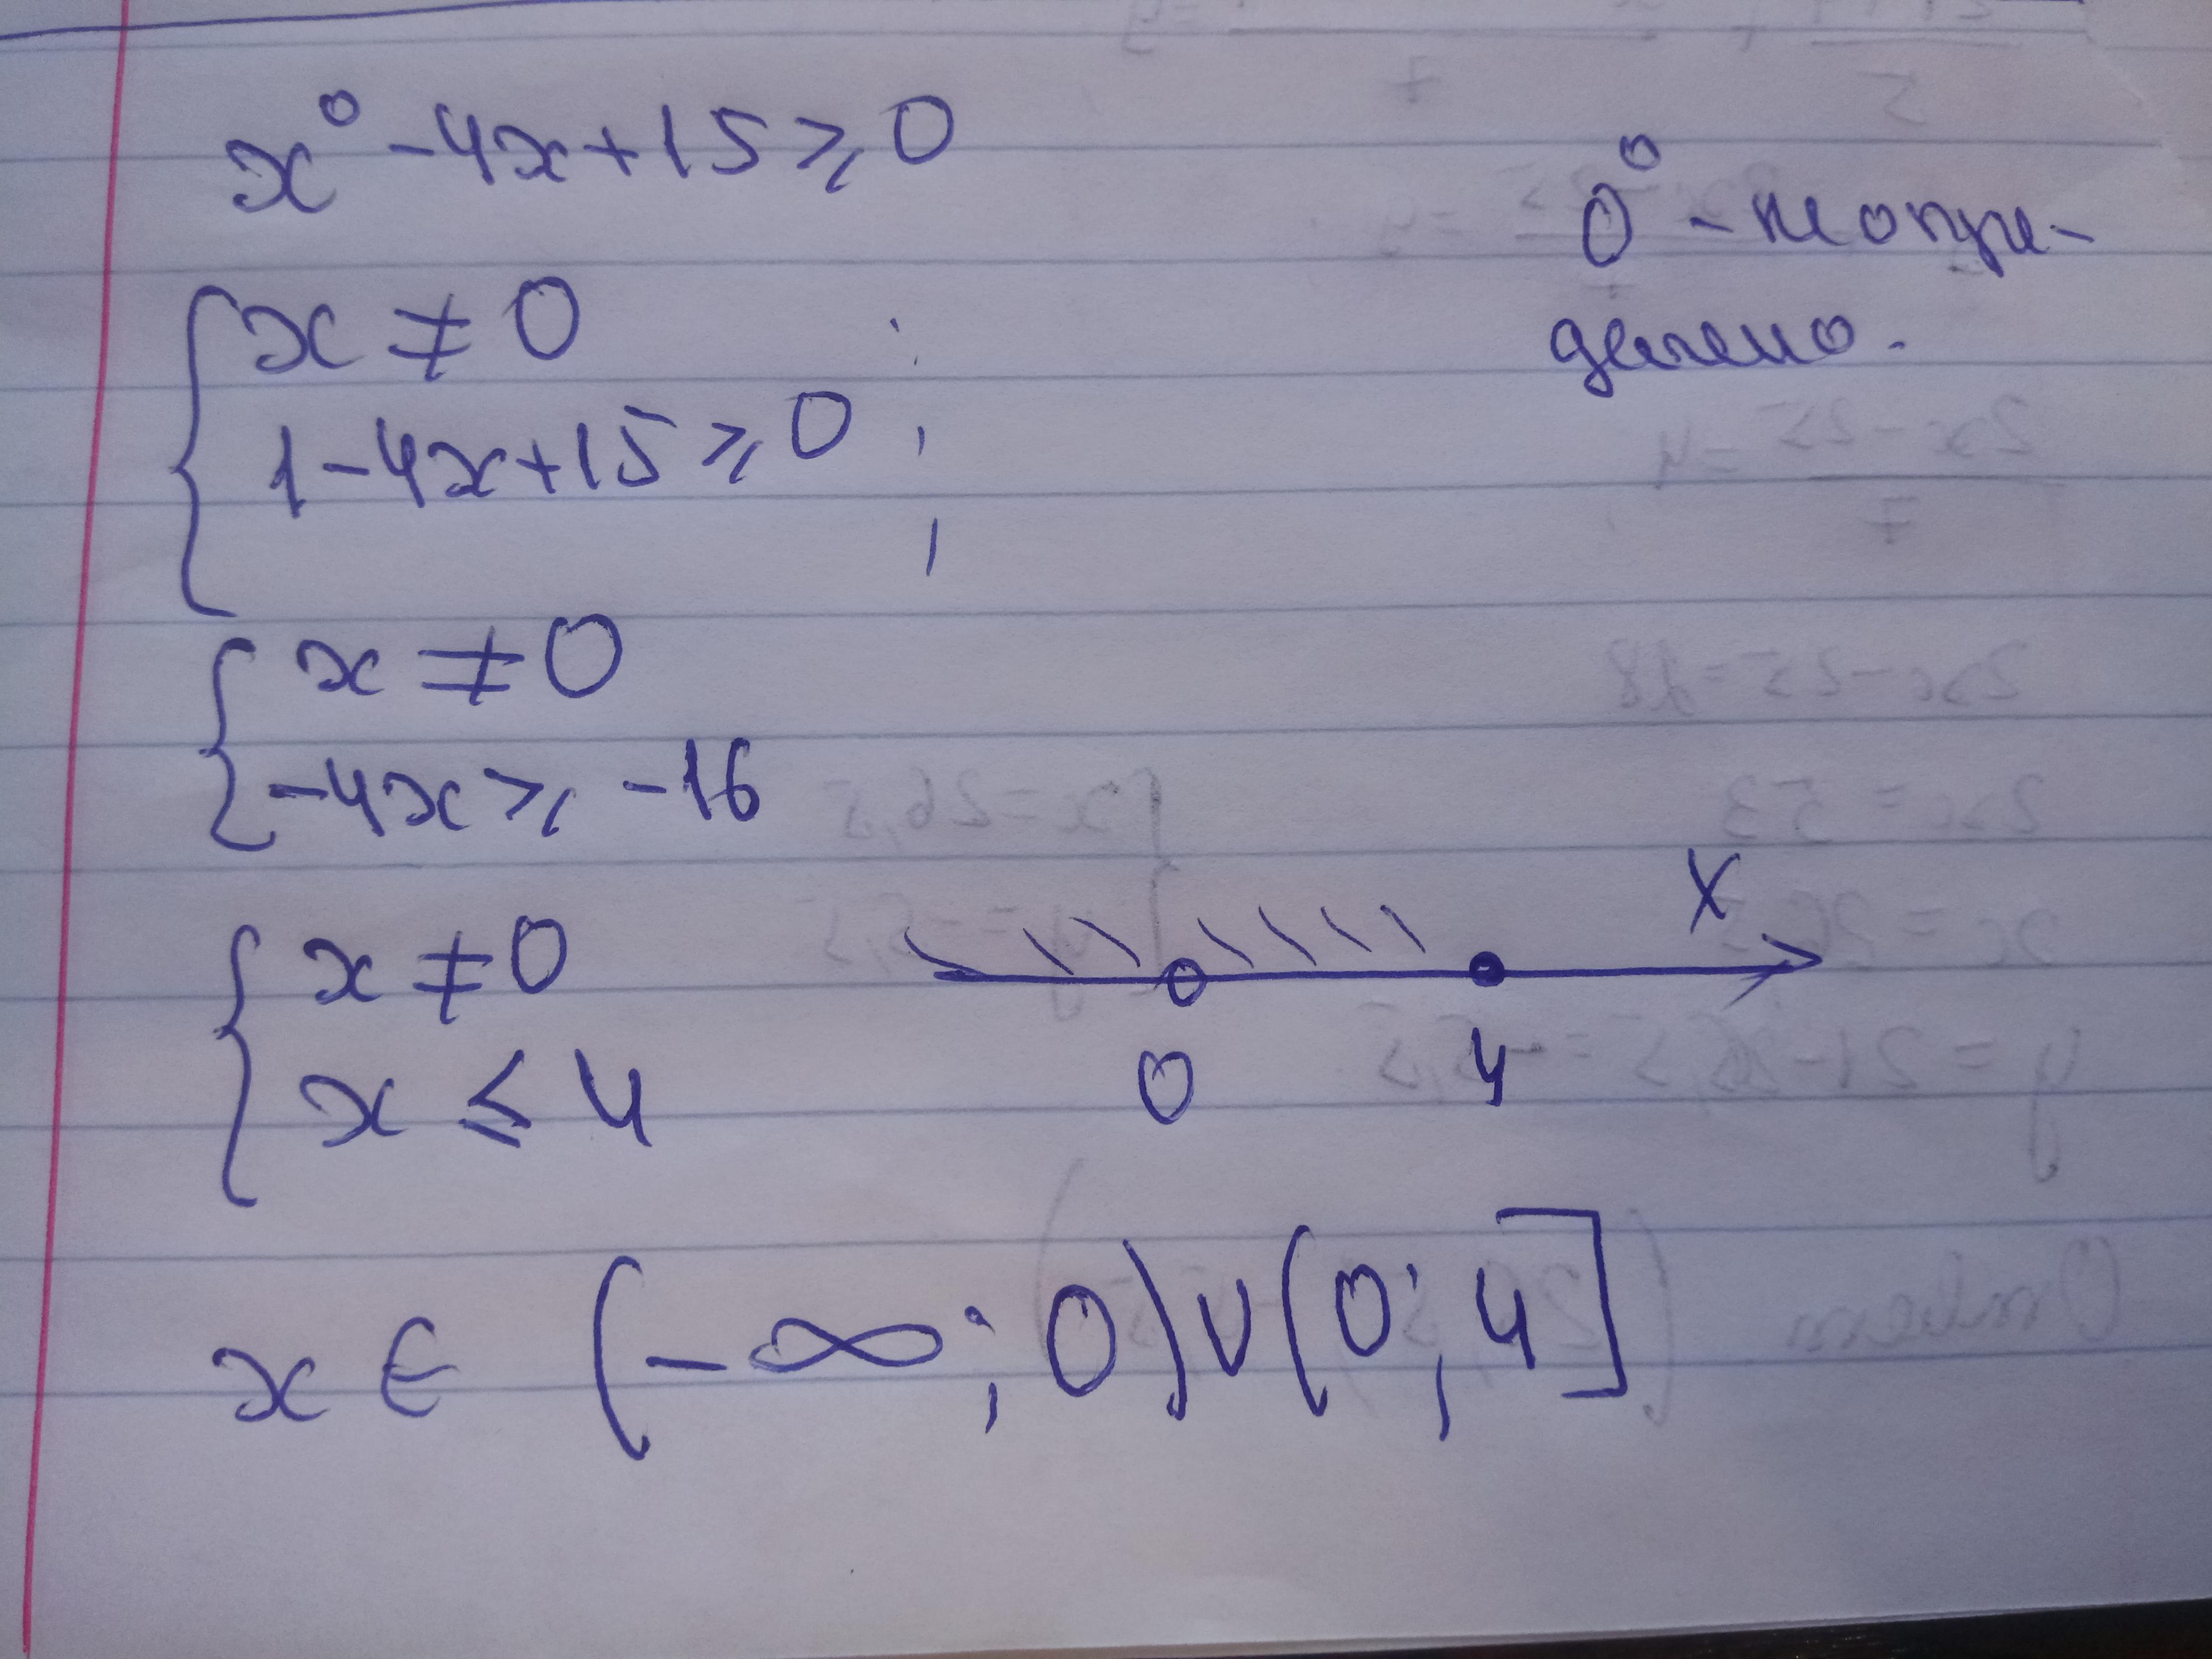 x⁰ - 4x + 15 ⩾ 0
0⁰ - неопре-
делено.
{ x ≠ 0
1 - 4x + 15 ⩾ 0 ;
{ x ≠ 0
-4x ⩾ -16
{ x ≠ 0
x ≤ 4
X
0 4
x ∈ (-∞; 0) ∪ (0; 4]